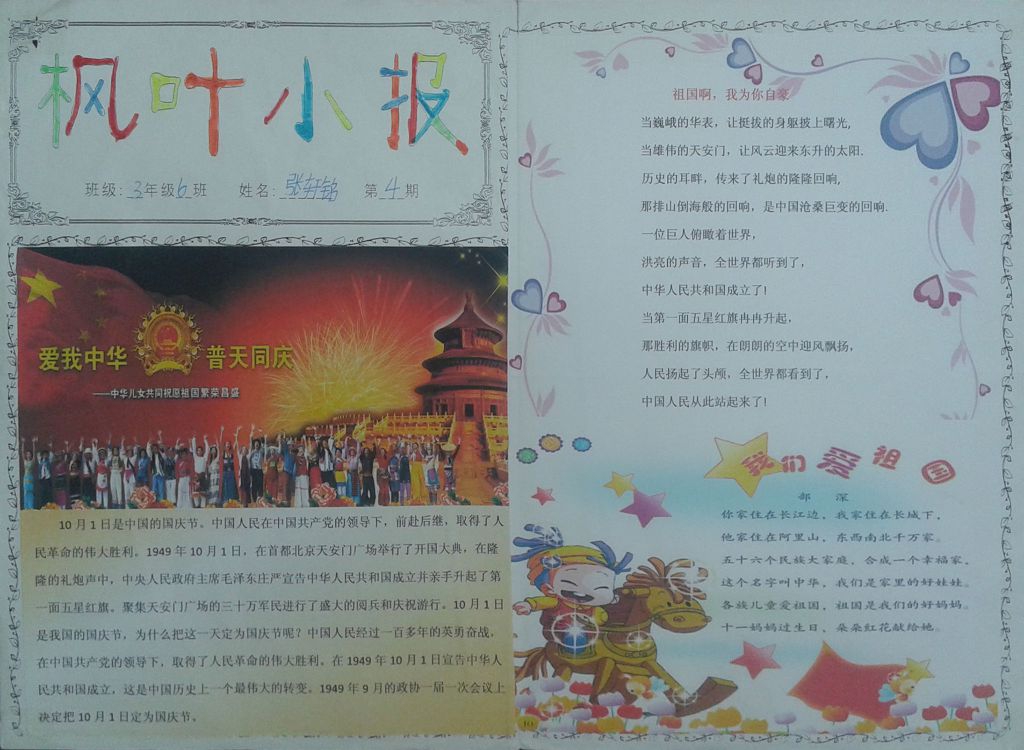 枫叶小报
班级:3年级6班 姓名:张轩铭 第4期
爱我中华 普天同庆
——中华儿女共同祝愿祖国繁荣昌盛
10月1日是中国的国庆节。中国人民在中国共产党的领导下，前赴后继，取得了人
民革命的伟大胜利。1949年10月1日，在首都北京天安门广场举行了开国大典，在隆
隆的礼炮声中，中央人民政府主席毛泽东庄严宣告中华人民共和国成立并亲手升起了第
一面五星红旗。聚集天安门广场的三十万军民进行了盛大的阅兵和庆祝游行。10月1日
是我国的国庆节，为什么把这一天定为国庆节呢？中国人民经过一百多年的英勇奋战，
在中国共产党的领导下，取得了人民革命的伟大胜利。在1949年10月1日宣告中华人
民共和国成立，这是中国历史上一个最伟大的转变。1949年9月的政协一届一次会议上
决定把10月1日定为国庆节。
祖国啊，我为你自豪
当巍峨的华表，让挺拔的身躯披上曙光,
当雄伟的天安门，让风云迎来东升的太阳.
历史的耳畔，传来了礼炮的隆隆回响,
那排山倒海般的回响，是中国沧桑巨变的回响.
一位巨人俯瞰着世界，
洪亮的声音，全世界都听到了，
中华人民共和国成立了!
当第一面五星红旗冉冉升起，
那胜利的旗帜，在朗朗的空中迎风飘扬，
人民扬起了头颅，全世界都看到了，
中国人民从此站起来了!
我们爱祖国
深
你家住在长江边、我家住在长城下，
他家住在阿里山、东西南北千万家。
五十六个民族大家庭、合成一个幸福家，
这个名字叫中华、我们是家里的好娃娃。
各族儿童爱祖国、祖国是我们的好妈妈。
十一妈妈过生日、朵朵红花献给她。
10